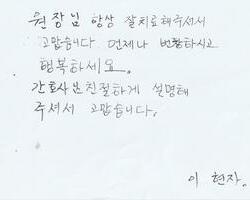 원장님 항상 잘치료해주셔서
고맙습니다. 언제나 번창하시고
행복하세요.
간호사분친절하게 설명해
주셔서 고맙습니다.
이 현자.